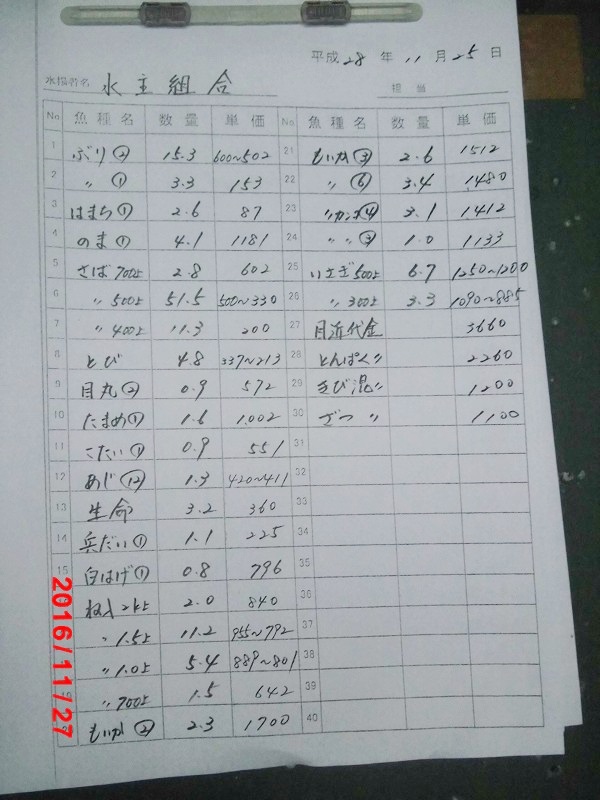 平成 28 年 11 月 25 日
水揚者名 水主組合 担当
No 魚種名 数量 単価 No 魚種名 数量 単価
1 ぶり② 15.3 600~502 21 もいか③ 2.6 1512
2 〃① 3.3 153 22 〃⑥ 3.4 1480
3 はまち① 2.6 87 23 〃カンナ④ 3.1 1412
4 のま① 4.1 1181 24 〃〃③ 1.0 1133
5 さば700上 2.8 602 25 いさぎ500上 6.7 1250~1200
6 〃500上 51.5 500~330 26 〃300上 3.3 1090~885
7 〃400上 11.3 200 27 目近代金 3660
8 とび 4.8 337~213 28 とんぱく〃 2260
9 目丸② 0.9 572 29 きび混〃 1200
10 たまめ① 1.6 1,002 30 ざつ〃 1100
11 こだい① 0.9 551 31
12 めじ⑫ 1.3 420~411 32
13 生命 3.2 360 33
14 兵だい① 1.1 225 34
15 白はげ① 0.8 796 35
ねいり2k上 2.0 840 36
〃1.5上 11.2 955~792 37
〃1.0上 5.4 889~801 38
〃700上 1.5 642 39
もいか② 2.3 1700 40
2016/11/27